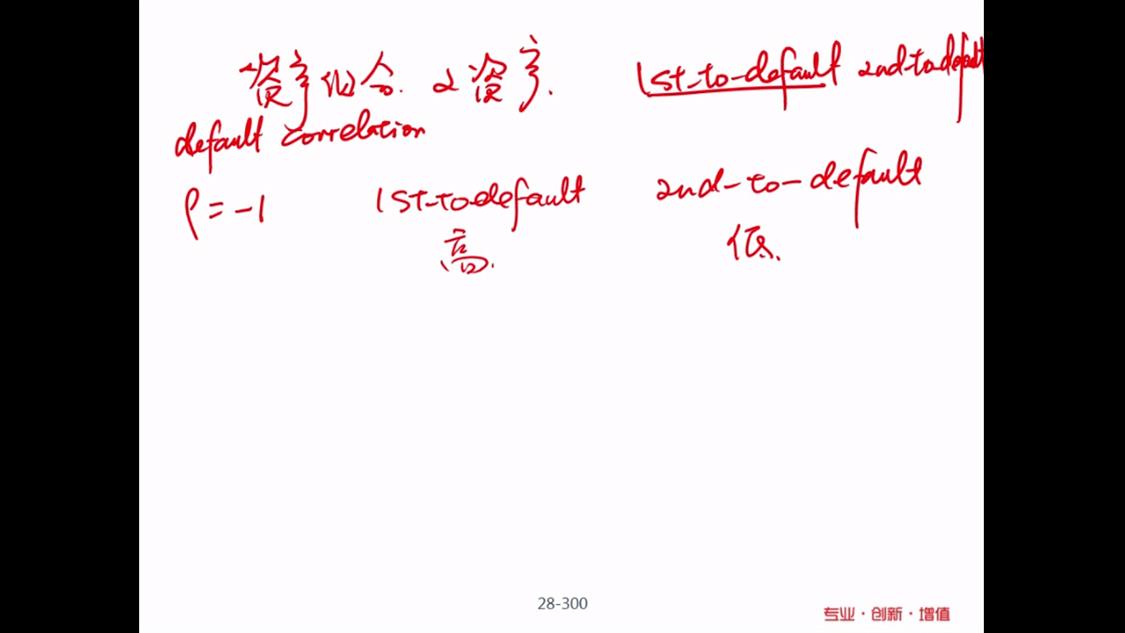 资产组合. 2资产. 1st-to-default 2nd-to-default
default correlation
ρ = -1 1st-to-default 2nd-to-default
高. 低.
28-300
专业·创新·增值